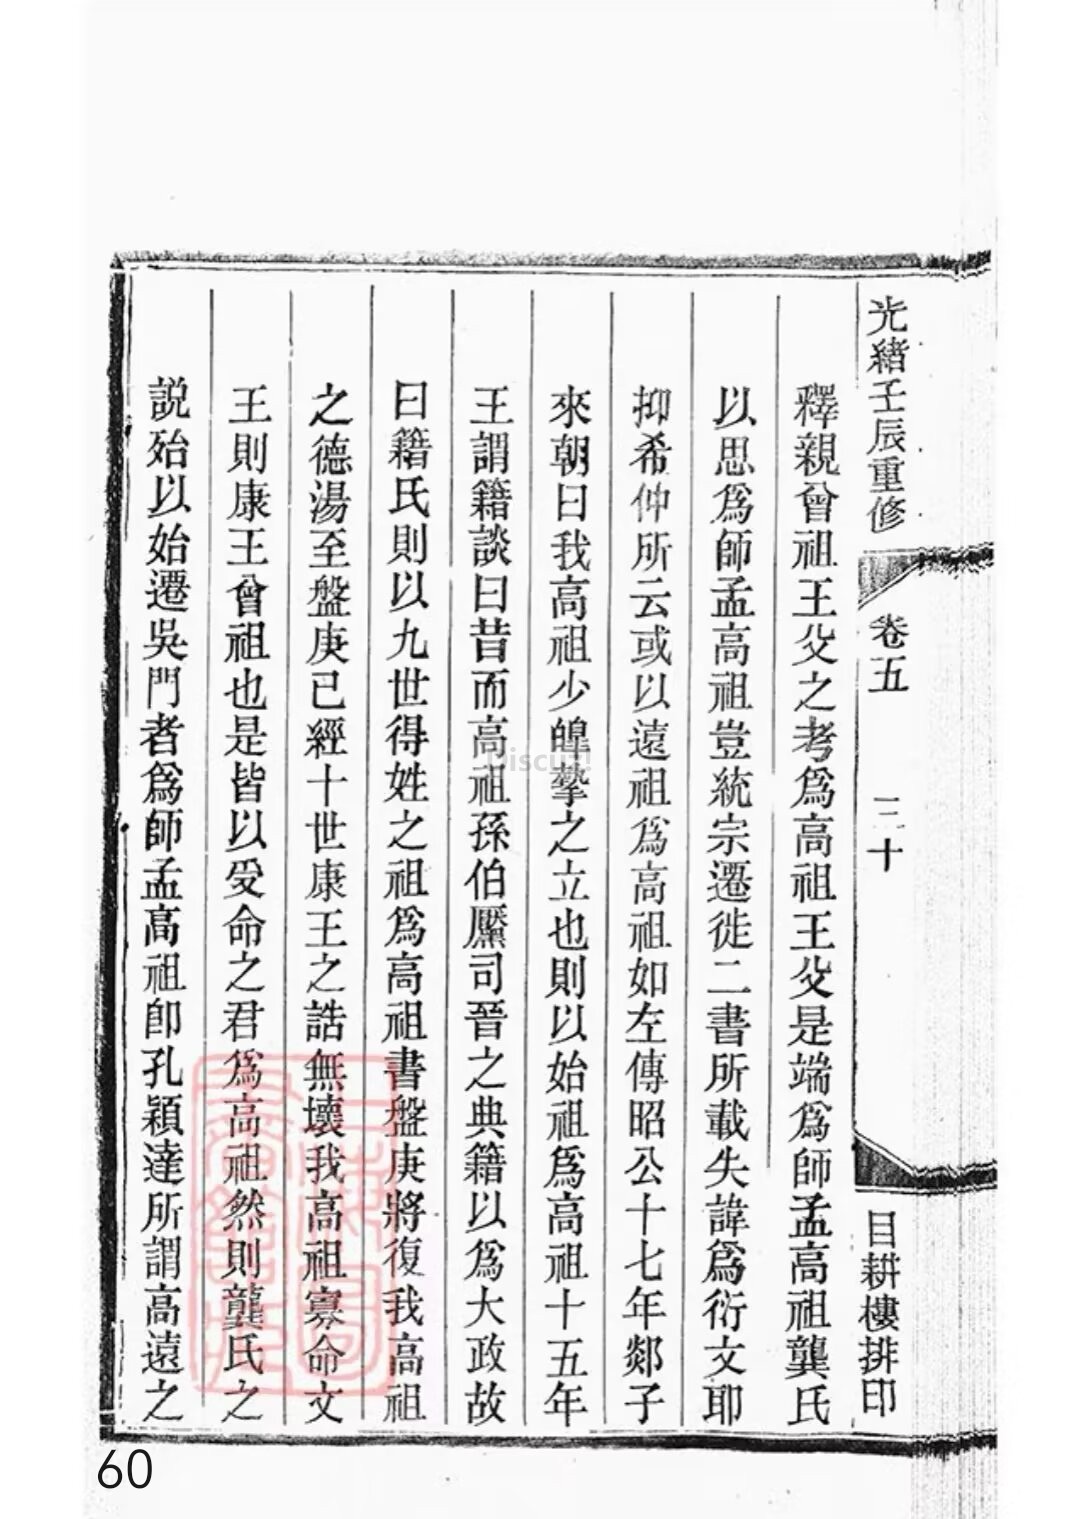 光緒壬辰重修
卷五
三十
目耕樓排印
釋親曾祖王父之考爲高祖王父是端爲師孟高祖龔氏
以思爲師孟高祖豈統宗遷徙二書所載失諱爲衍文耶
抑希仲所云或以遠祖爲高祖如左傳昭公十七年郯子
來朝曰我高祖少皥摯之立也則以始祖爲高祖十五年
王謂籍談曰昔而高祖孫伯黶司晉之典籍以爲大政故
曰籍氏則以九世得姓之祖爲高祖書盤庚將復我高祖
之德湯至盤庚已經十世康王之誥無壞我高祖寡命文
王則康王曾祖也是皆以受命之君爲高祖然則龔氏之
說殆以始遷吳門者爲師孟高祖卽孔穎達所謂高遠之
Discuz!
60